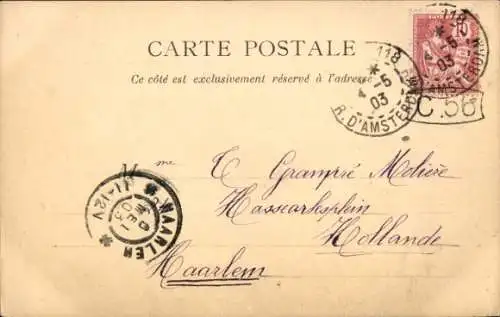 CARTE POSTALE
Ce côté est exclusivement réservé à l'adresse
118
R. D'AMSTERDAM
-5
03
118
-5
03
10
C.56
Mme
T Grampré Molière
Hasserkesplein
Hollande
Haarlem
HAARLEM
11-12V
03